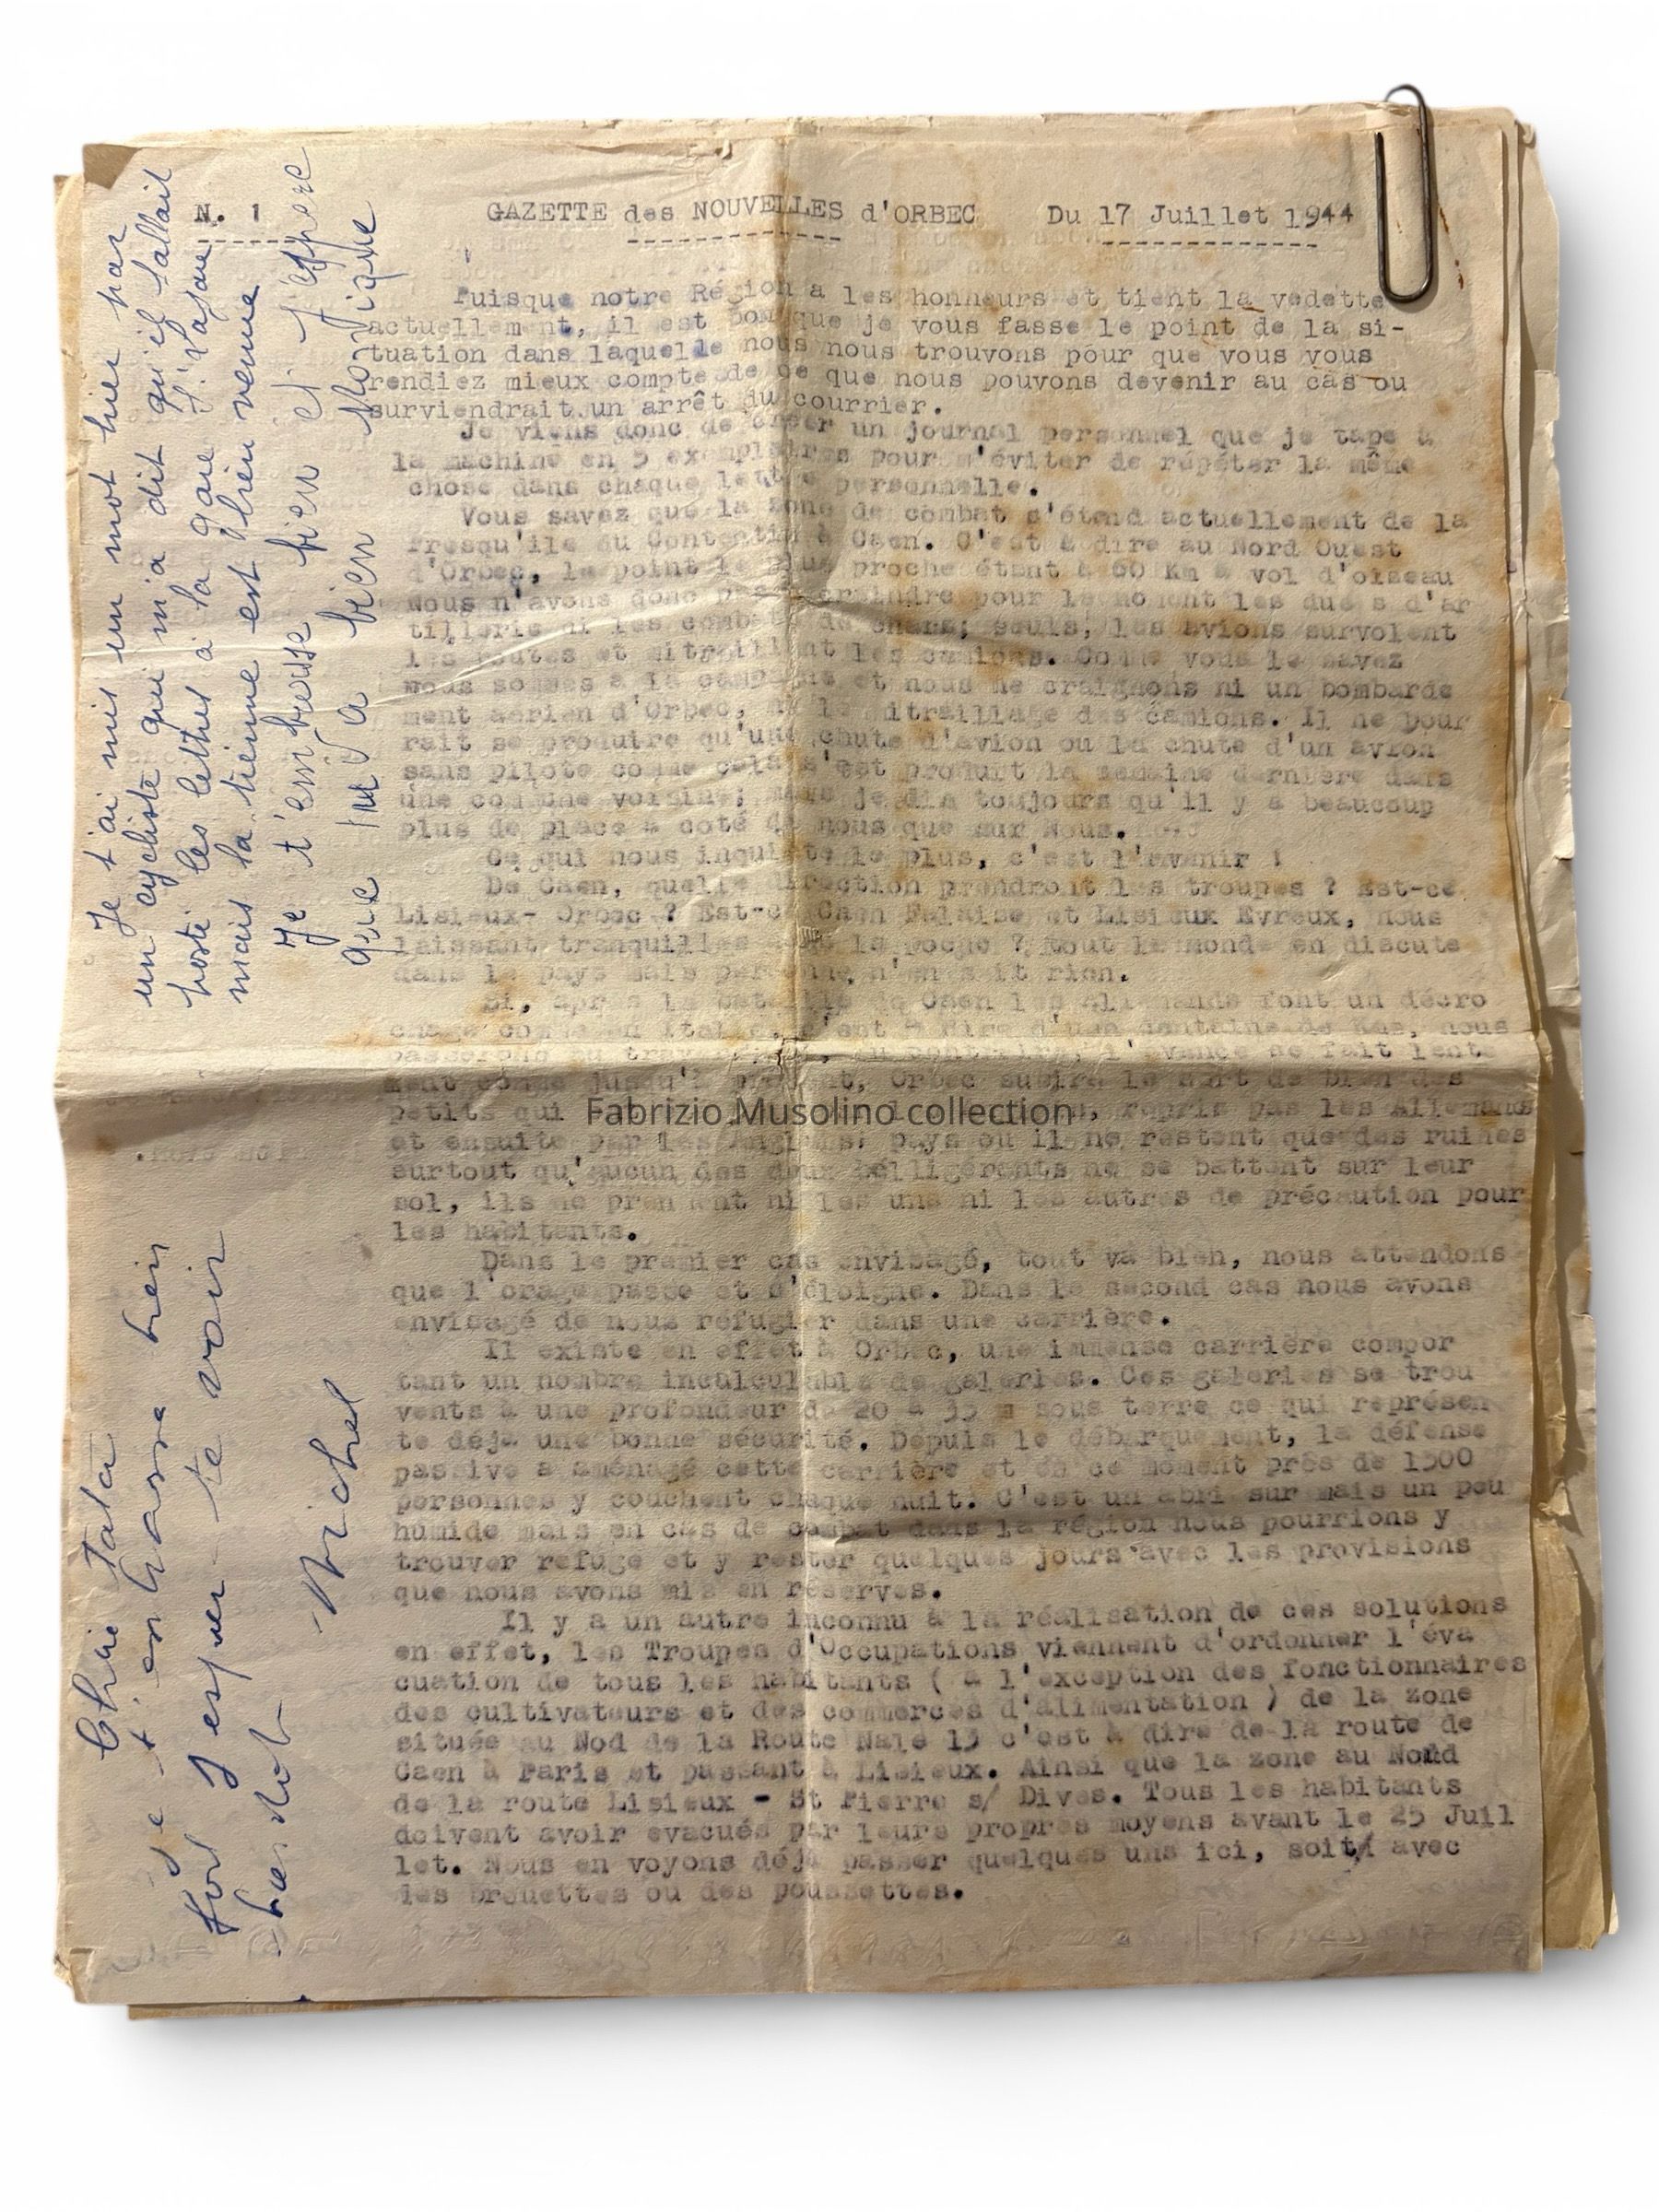 N. 1 GAZETTE des NOUVELLES d'ORBEC Du 17 Juillet 1944
Puisque notre Région a les honneurs et tient la vedette
actuellement, il est bon que je vous fasse le point de la si-
tuation dans laquelle nous nous trouvons pour que vous vous
rendiez mieux compte de ce que nous pouvons devenir au cas ou
surviendrait un arrêt du courrier.
Je viens donc de créer un journal personnel que je tape à
la machine en 5 exemplaires pour m'éviter de répéter la même
chose dans chaque lettre personnelle.
Vous savez que la zone de combat s'étend actuellement de la
Presqu'ile du Contentin à Caen. C'est à dire au Nord Ouest
d'Orbec, le point le plus proche étant à 60 Km à vol d'oiseau
Nous n'avons donc pas à craindre pour le moment les duels d'ar
tillerie ni les combats de chars; seuls, les avions survolent
les routes et mitraillent les camions. Comme vous le savez
nous sommes à la campagne et nous ne craignons ni un bombarde
ment aérien d'Orbec, ni le mitraillage des camions. Il ne pour
rait se produire qu'une chute d'avion ou la chute d'un avion
sans pilote comme cela s'est produit la semaine dernière dans
une commune voisine; mais je dis toujours qu'il y a beaucoup
plus de place à coté de nous que sur Nous.
Ce qui nous inquiète le plus, c'est l'avenir !
De Caen, quelle direction prendront les troupes ? Est-ce
Lisieux- Orbec ? Est-ce Caen Falaise et Lisieux Evreux, nous
laissant tranquilles dans la poche ? Tout le monde en discute
dans le pays mais personne n'en sait rien.
Si, après la bataille de Caen les Allemands font un décro
chage comme en Italie, c'est à dire d'une centaine de Kms, nous
passerons au travers, au contraire, l'avance se fait lente
ment comme jusqu'à présent, Orbec subira le sort de bien des
petits qui repris pas les Allemands
et ensuite par les Anglais: pays ou il ne restent que des ruines
surtout qu'aucun des deux bélligérants ne se battent sur leur
sol, ils ne prennent ni les uns ni les autres de précaution pour
les habitants.
Dans le premier cas envisagé, tout va bien, nous attendons
que l'orage passe et s'éloigne. Dans le second cas nous avons
envisagé de nous réfugier dans une carrière.
Il existe en effet à Orbec, une immense carrière compor
tant un nombre incalculable de galeries. Ces galeries se trou
vents à une profondeur de 20 à 35 m sous terre ce qui représen
te déjà une bonne sécurité. Depuis le débarquement, la défense
passive a aménagé cette carrière et en ce moment près de 1500
personnes y couchent chaque nuit. C'est un abri sur mais un peu
humide mais en cas de combat dans la région nous pourrions y
trouver refuge et y rester quelques jours avec les provisions
que nous avons mis en réserves.
Il y a un autre inconnu à la réalisation de ces solutions
en effet, les Troupes d'Occupations viennent d'ordonner l'éva
cuation de tous les habitants ( à l'exception des fonctionnaires
des cultivateurs et des commerces d'alimentation ) de la zone
située au Nod de la Route Nale 13 c'est à dire de la route de
Caen à Paris et passant à Lisieux. Ainsi que la zone au Nord
de la route Lisieux - St Pierre s/ Dives. Tous les habitants
doivent avoir evacués par leurs propres moyens avant le 25 Juil
let. Nous en voyons déjà passer quelques uns ici, soit avec
des brouettes ou des poussettes.
Je t'ai mis un mot hier par
un cycliste qui m'a dit qu'il fallait
posté les lettres à la gare
mais la tienne est bien venue
Je t'embrasse bien et j'espère
que va bien Monique
Chère tata
je t'embrasse bien
fort J'espère te voir
bientot
Michel
Fabrizio Musolino collection